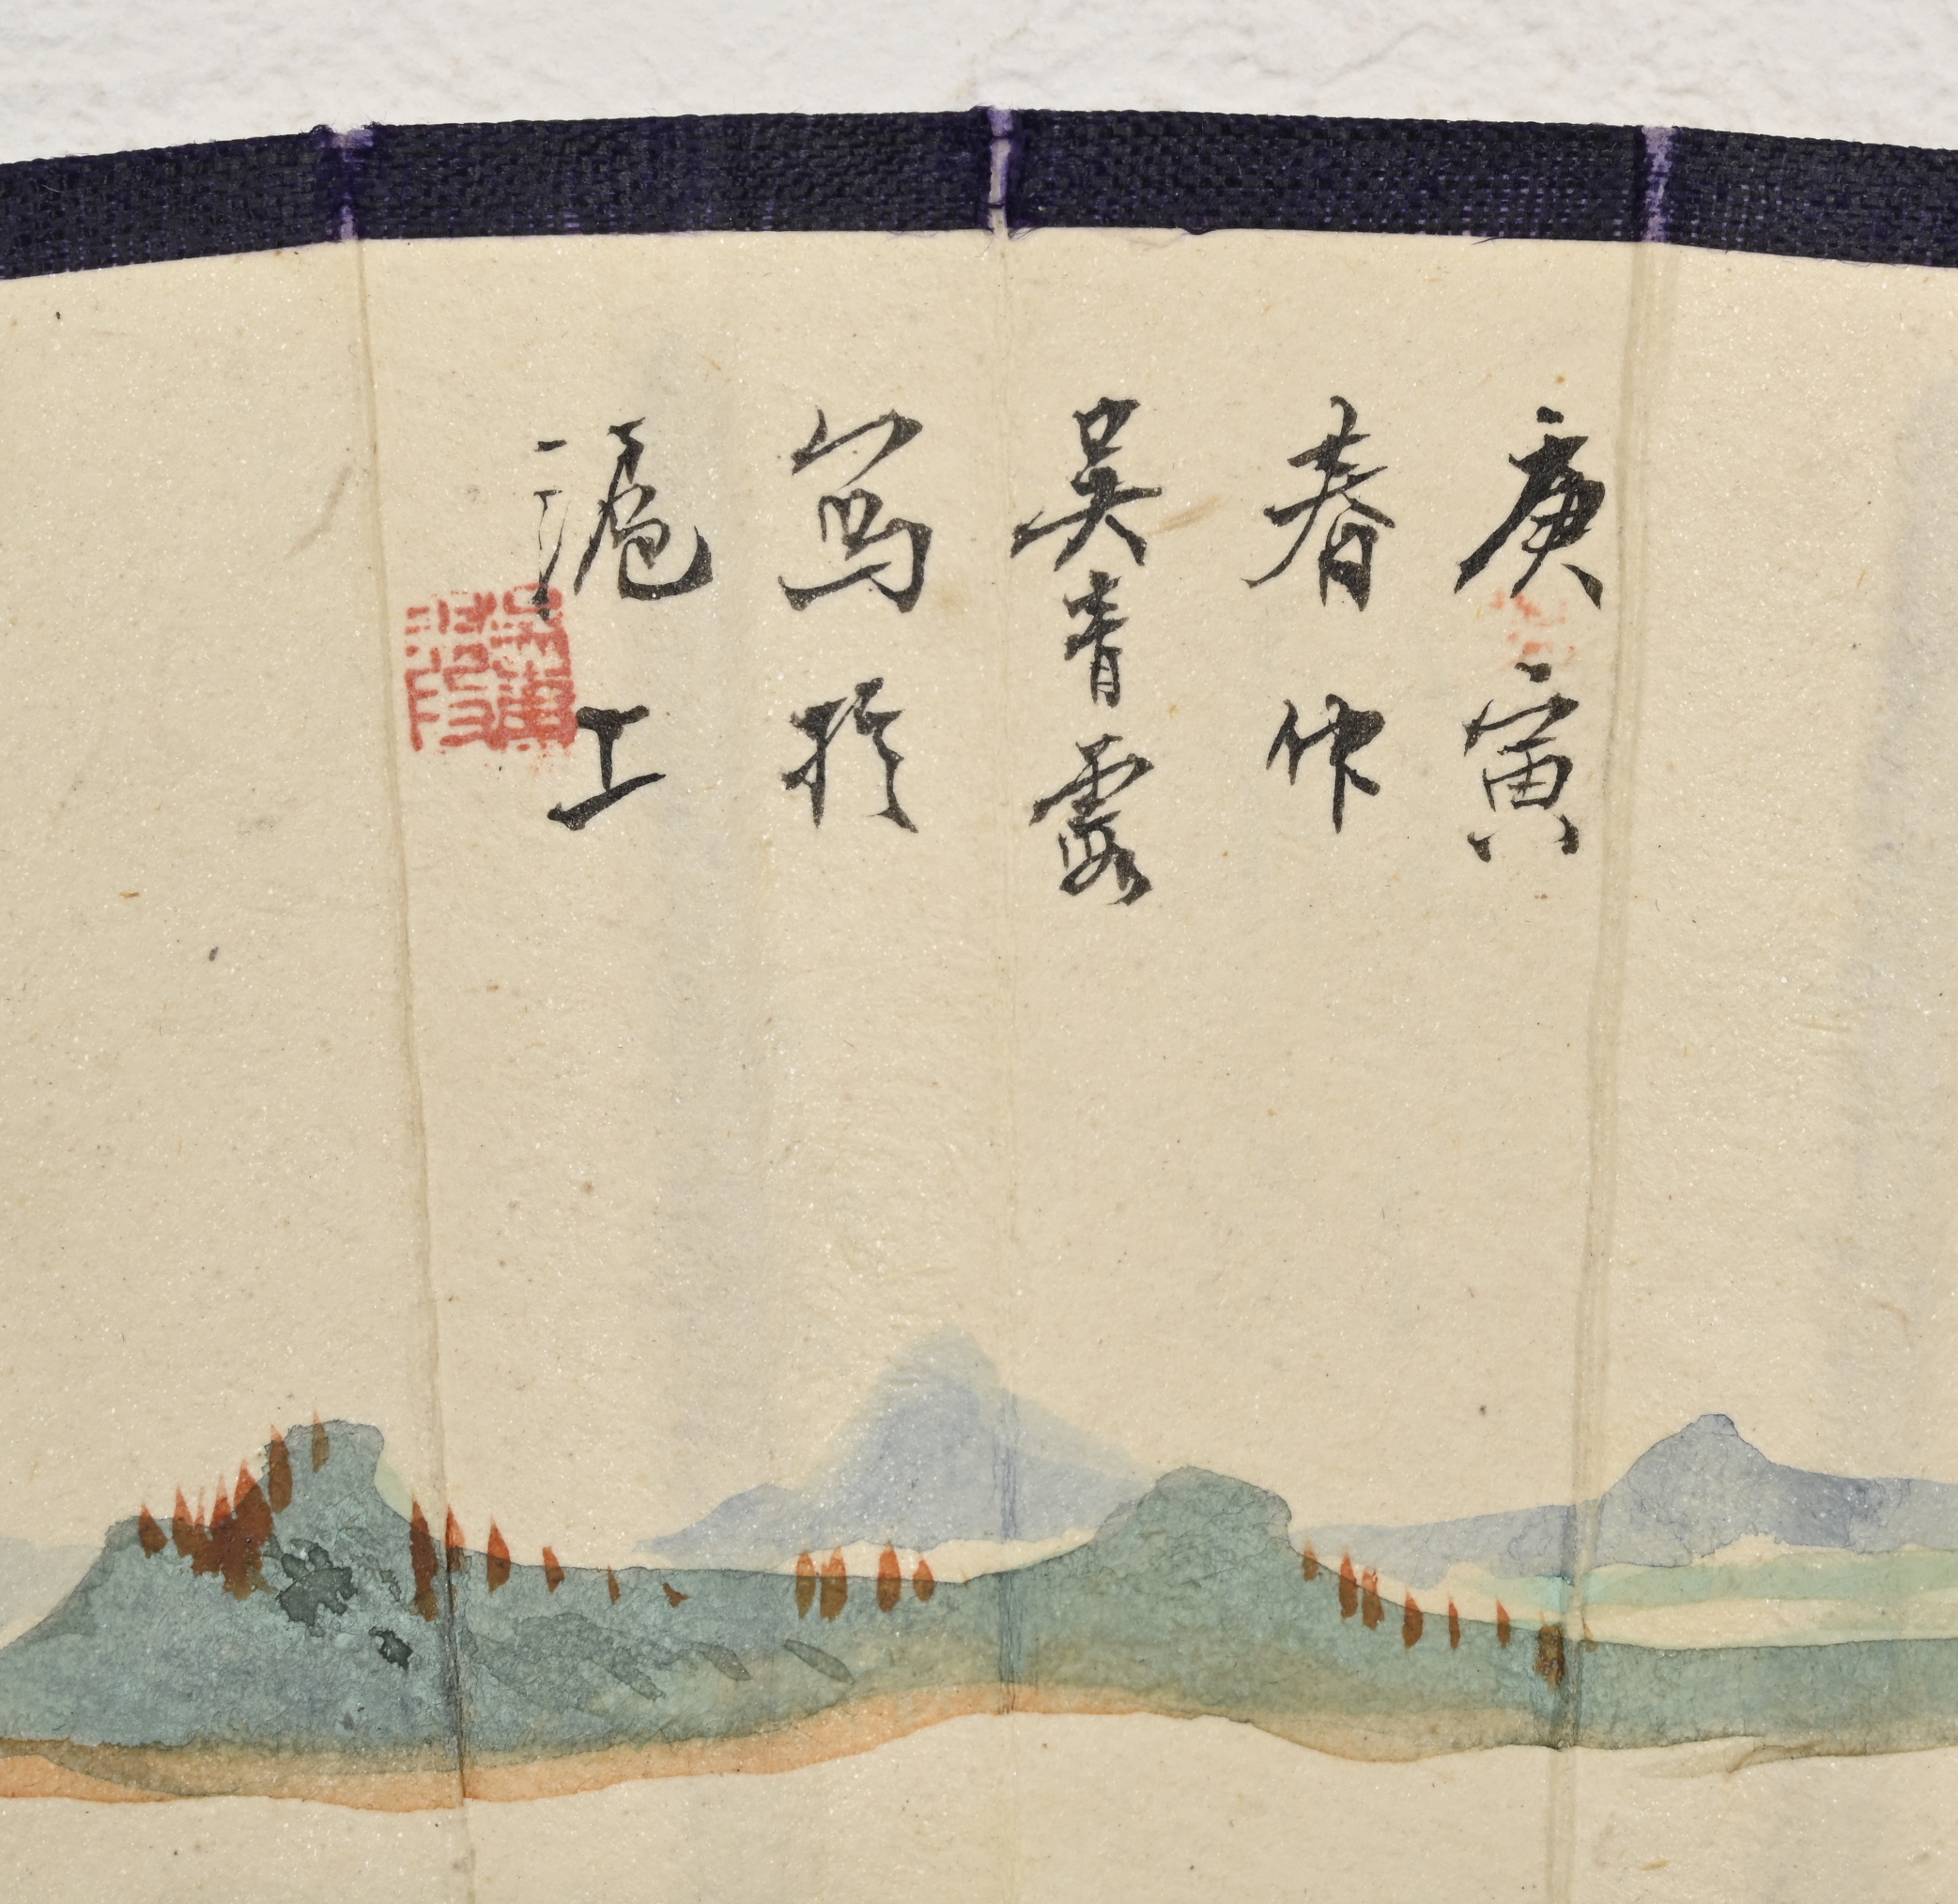 庚寅
春仲
吳青霞
寫於
滬上